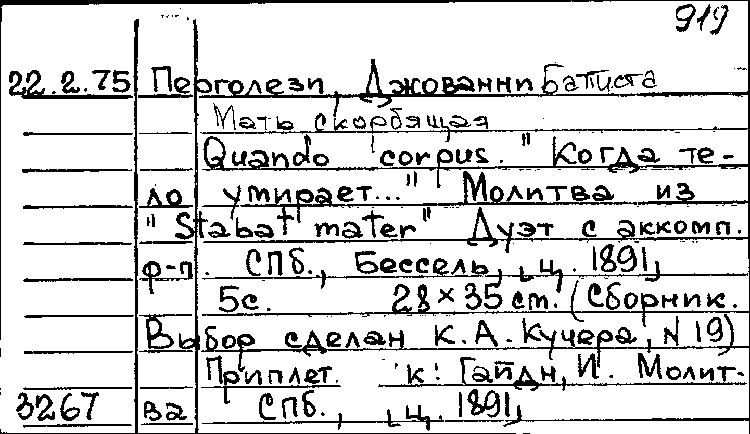 919
22.2.75 Перголези, Джованни Батиста
Мать скорбящая
Quando corpus. "Когда те-
ло умирает..." Молитва из
"Stabat mater" Дуэт с аккомп.
ф-п. СПб., Бессель, ц. 1891,
5с. 28 × 35 cm. (Сборник.
Выбор сделан К.А. Кучера, N 19)
Приплет. к: Гайдн, И. Молит-
3267 ва СПб., ц. 1891,